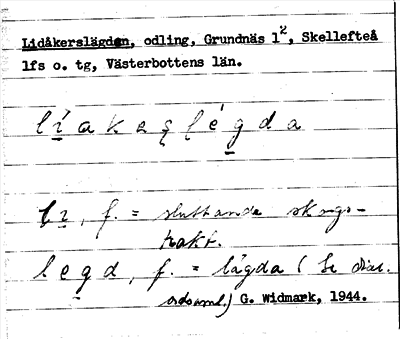 Lidåkerslägden, odling, Grundnäs 1², Skellefteå
lfs o. tg, Västerbottens län.
lí̱akaʂlég̱da
lı̱, f. = sluttande skogs-
trakt.
leg̱d, f. = lägda (Se dial.
ordsaml.) G. Widmark, 1944.